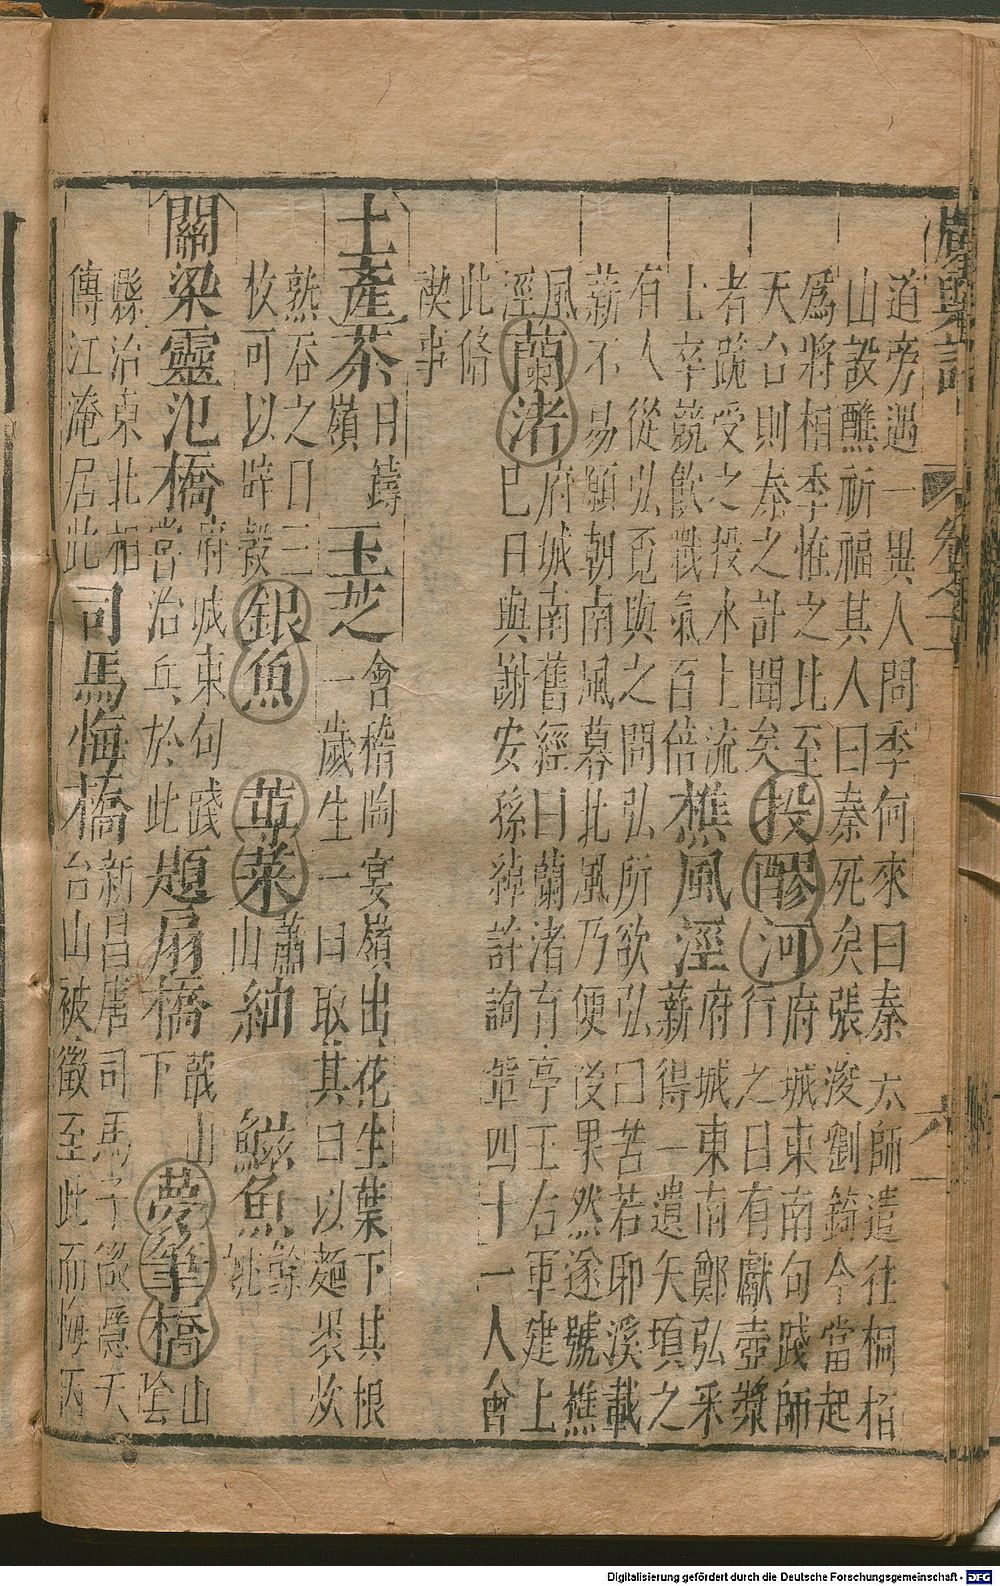 廣輿記
卷之十
六
道旁遇一異人問季何來曰秦太師遣往桐栢
山設醮祈福其人曰秦死矣張浚劉錡今當起
為將相季惟之此至
天台則秦之計聞矣
投醪河
府城東南句踐師
行之日有獻壺漿
者跪受之投水上流
士卒競飲戰氣百倍
樵風涇
府城東南鄭弘采
薪得一遺矢頃之
有人從弘覓與之問弘所欲弘曰苦若耶溪載
薪不易願朝南風暮北風乃便後果然遂號樵
風
涇
蘭渚
府城南舊經曰蘭渚有亭王右軍建上
巳日與謝安孫綽許詢輩四十一人會
此脩
禊事
土產
茶
日鑄
嶺
玉芝
會稽陶宴嶺出花生葉下其根
一歲生一臼取其臼以麵裹炊
熟吞之日三
枚可以辟穀
銀魚
蓴菜
蕭
山
紬
鱭魚
餘
姚
關梁
靈汜橋
府城東句踐
嘗治兵於此
題扇橋
蕺山
下
夢筆橋
山
陰
縣治東北相
傳江淹居此
司馬悔橋
新昌唐司馬子微隱天
台山被徵至此而悔因
Digitalisierung gefördert durch die Deutsche Forschungsgemeinschaft - DFG